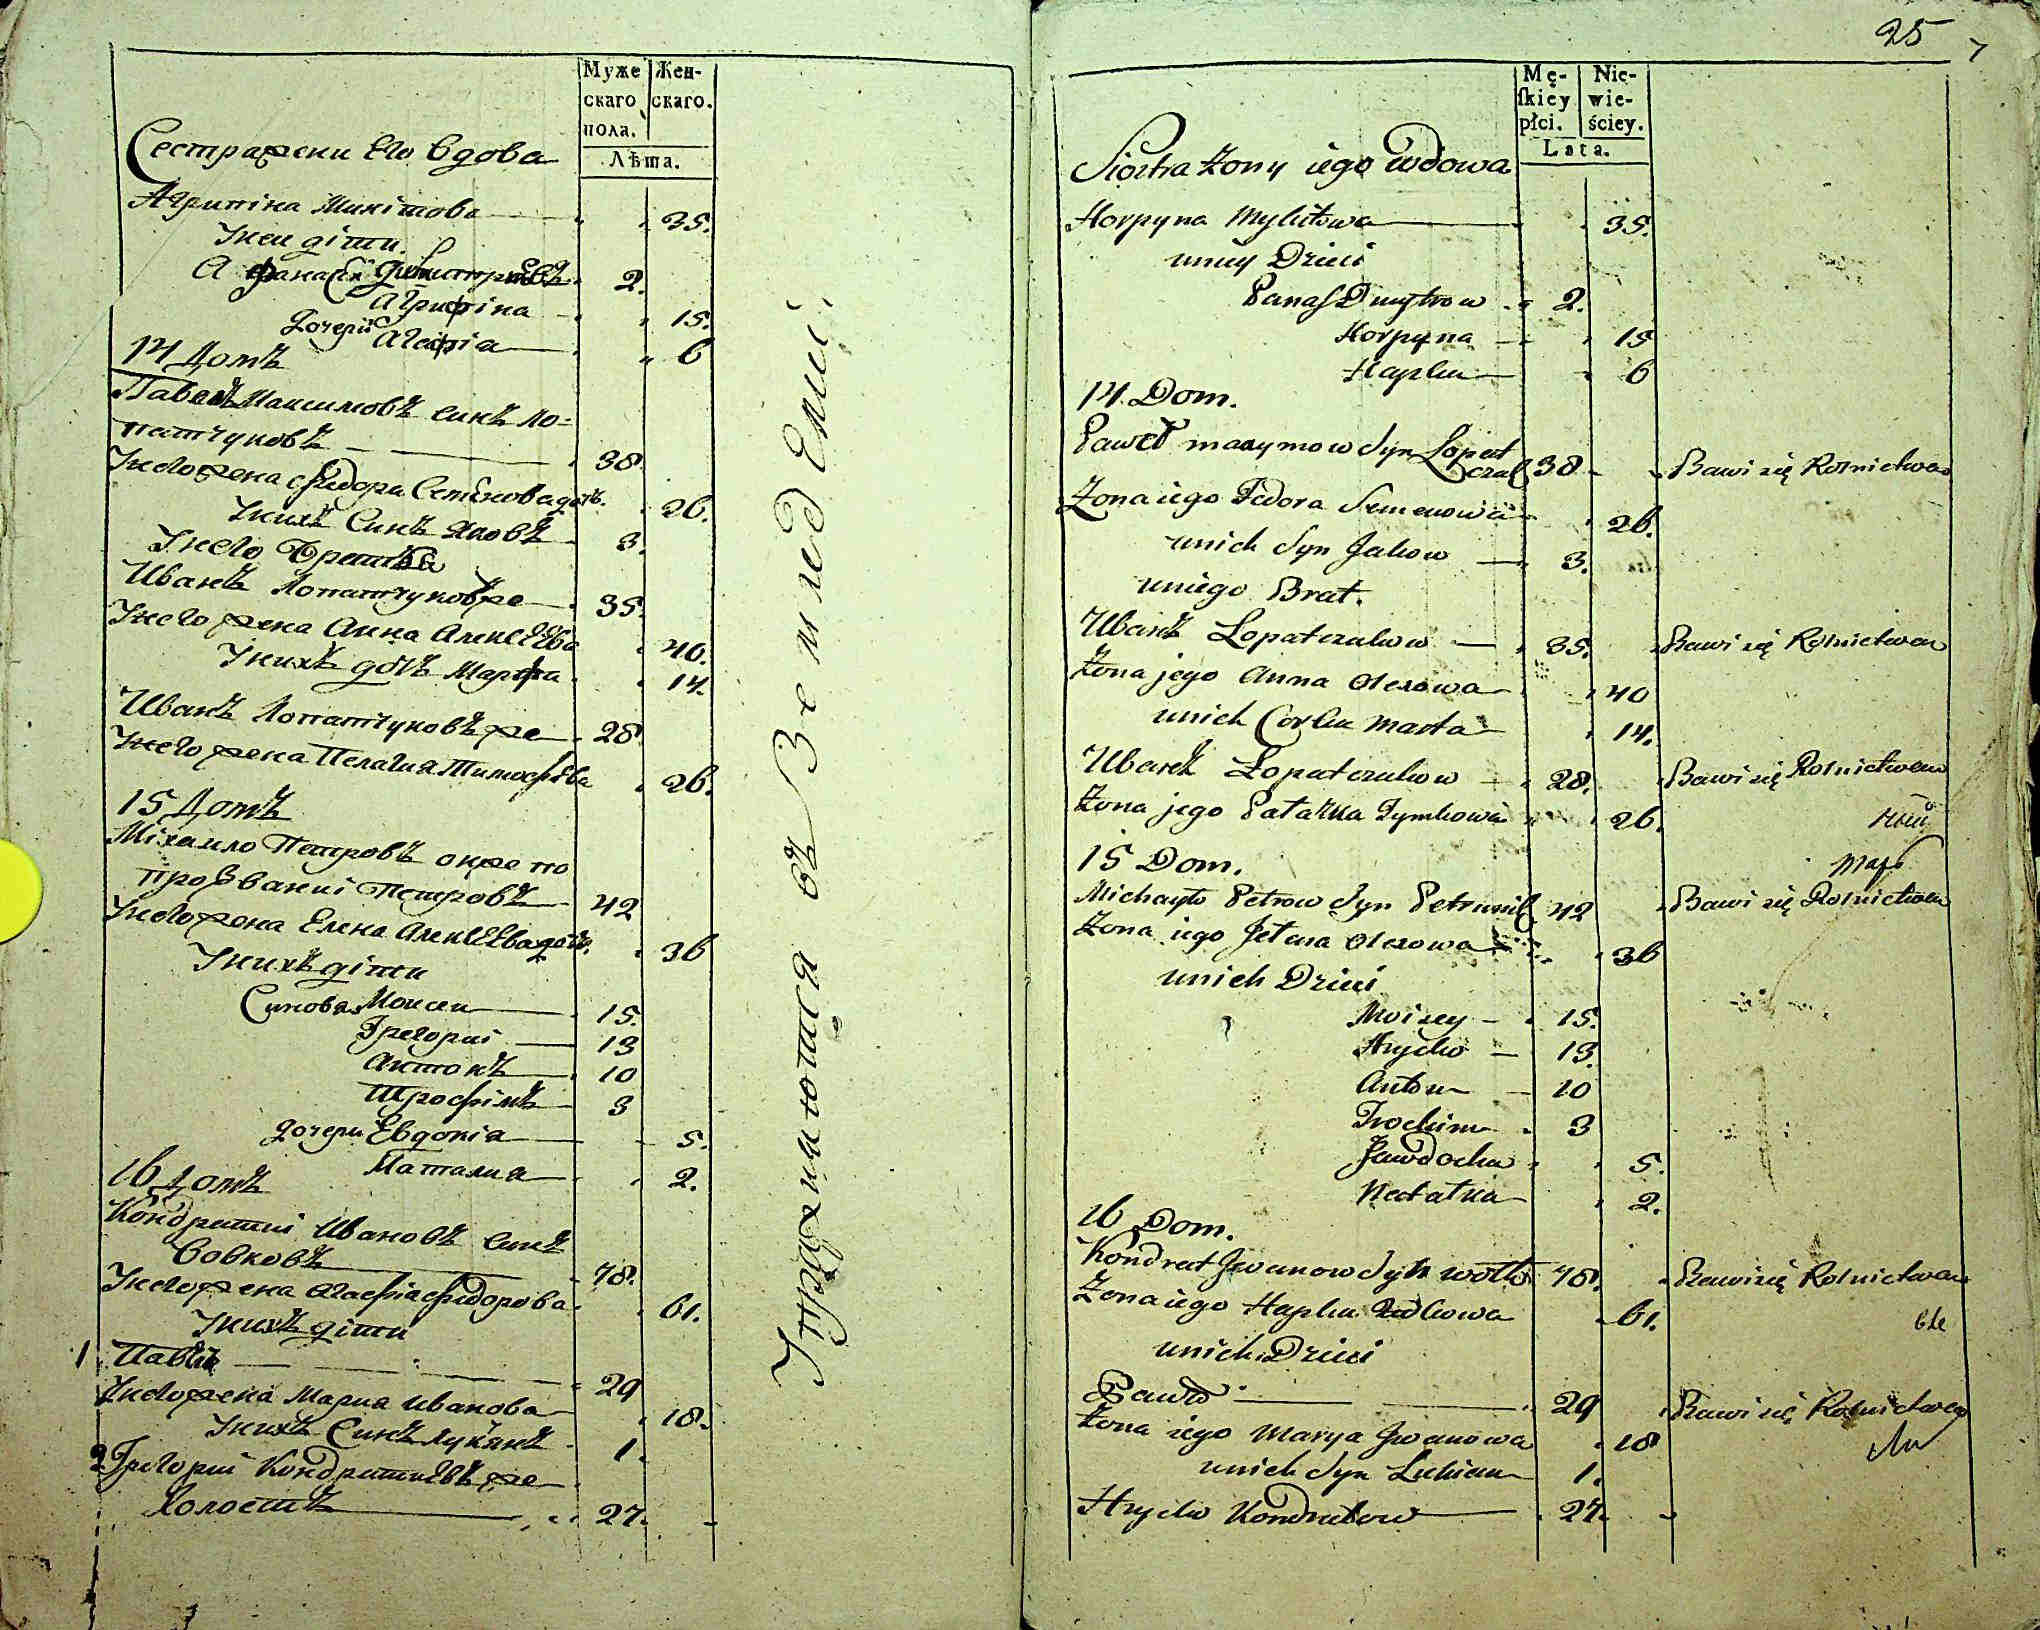 Муже Жен-
скаго скаго.
пола.
Лѣта.
Сестра жени Его вдова
Агрипіна Микітова 35.
У неи діти
Афанасій Димитріевъ 2.
Агрипіна 15.
дочери Агафіа 6
14 Домъ
Павелъ Максимовъ синъ Ло=
патчуковъ 38.
У него жена Федора Семенова дочь. 26.
У нихъ Синъ Яковъ 3.
У него Братъ
Иванъ Лопатчуковъ же 35.
У него жена Анна Алексеева 40.
У нихъ дочь Марфа 14.
Иванъ Лопатчуковъ же 28.
У него жена Пелагия Тимофеева 26.
15 Домъ
Міхаило Петровъ онже по
прозванiи Петровъ 42
У него жена Елена Алексеева дочь. 36
У нихъ діти
Синова Моисеи 15.
Грегориi 13
Антонъ 10
Трофімъ 3
дочери Евдокіа 5.
Наталиа 2.
16 Домъ
Кондратиi Ивановъ синъ
Вовковъ 78.
У него жена Агафіа Федорова 61.
У нихъ діти
1 Павелъ 29
У него жена Мариа Иванова 18.
У нихъ Синъ Лукянъ 1.
2 Грегориi Кондратиевъ же
Холостъ 27.
Упражнаютса въ Земледелиi.
25
Mę- Nie-
ſkiey wie-
płci. ściey.
Lata.
Siostra żony iego wdowa
Horpyna Mykitowa 35.
uniey Dzieci
Panas Dmytrow 2.
Horpyna 15
Hapka 6
14. Dom.
Paweł maxymow Syn Lopat
czuk 38 Bawi się Rolnictwem
Żona iego Fedora Semenowa 26.
unich Syn Jakow 3.
uniego Brat.
Иванъ Lopatczukow 35. Bawi się Rolnictwem
Żona jego Anna Olexowa 40
unich Corka Marta 14.
Иванъ Lopatczukow 28. Bawi się Rolnictwem
Żona jego Palazka Tymkowa 26.
15 Dom.
Michayło Petrow Syn Petrunik 42 Bawi się Rolnictwem
Żona iego Jelena Olexowa 36
unich Dzieci
Moizey 15.
Hrycko 13.
Anton 10
Trochim 3
Jawdocha 5.
Natalka 2.
16 Dom.
Kondrat Jwanow Syn wołk 78. Bawi się Rolnictwem
Żona iego Hapka Fedkowa 61.
unich Dzieci
Pawło 29 Bawi się Rolnictwem
Żona iego Marya Jwanowa 18
unich Syn Lukian 1.
Hrycko Kondratow 27.